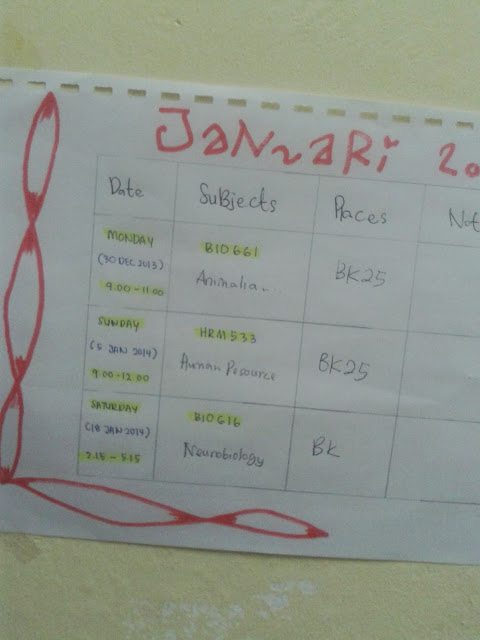 JANUARI 20
Date Subjects Places Not
MONDAY
(30 DEC 2013)
9.00-11.00
BIO661
Animalia..
BK25
SUNDAY
(5 JAN 2014)
9.00-12.00
HRM533
Human Resource
BK25
SATURDAY
(18 JAN 2014)
2.15-5.15
BIO616
Neurobiology
BK